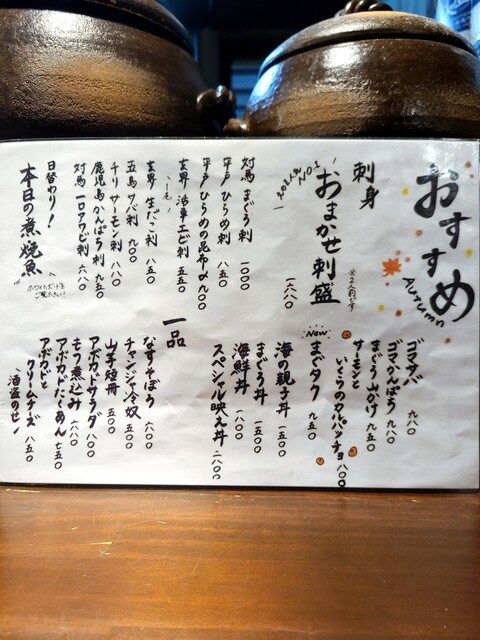 おすすめ
Autumn
刺身
※2人前です
とりあえずNO.1
おまかせ刺盛
一六八〇
対馬 まぐろ刺 一〇〇〇
平戸 ひらめ刺 八五〇
平戸 ひらめの昆布〆 九〇〇
玄界 活車エビ刺 五五〇
玄界 生だこ刺 八五〇
五島 サバ刺 九〇〇
チリ サーモン刺 八八〇
鹿児島 かんぱち刺 九五〇
対馬 一口アワビ刺 一六八〇
日替わり!
本日の煮・焼魚
ホワイトボードをご覧ください!
ゴマサバ 九八〇
ゴマかんぱち 九八〇
まぐろ山かけ 九五〇
サーモンと
いくらのカルパッチョ 一八〇〇
New
まぐタク 九五〇
海の親子丼 一五〇〇
まぐろ丼 一五〇〇
海鮮丼 一八〇〇
スペシャル映え丼 二八〇〇
一品
なすそぼろ 六〇〇
チャンジャ冷奴 五〇〇
山芋短冊 五〇〇
アボカドサラダ 八〇〇
モツ煮込み 一六八〇
アボカドたくあん 七五〇
アボカドと
クリームチーズ 八五〇
酒盗のせ!